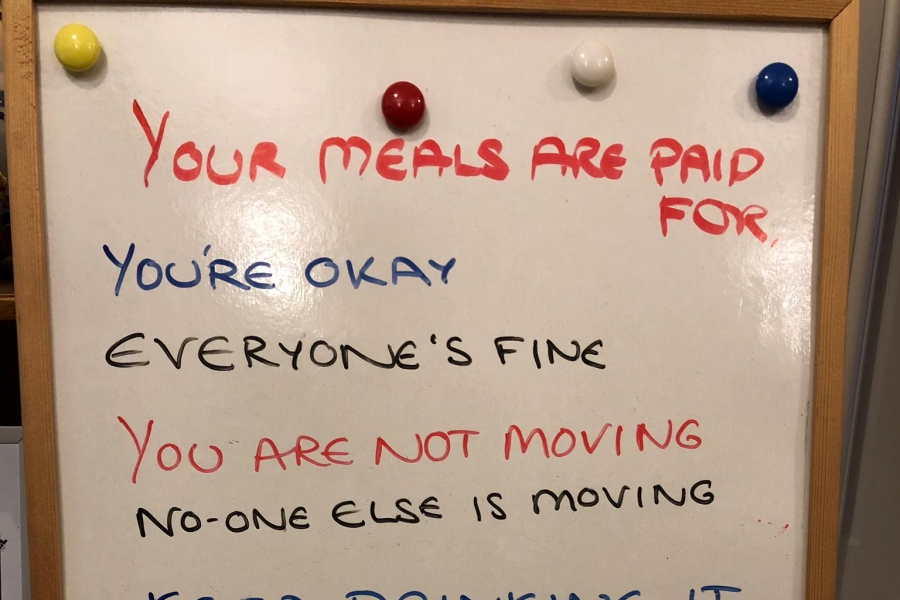 YOUR MEALS ARE PAID
FOR.
YOU'RE OKAY
EVERYONE'S FINE
YOU ARE NOT MOVING
NO-ONE ELSE IS MOVING
KEEP DRINKING IT